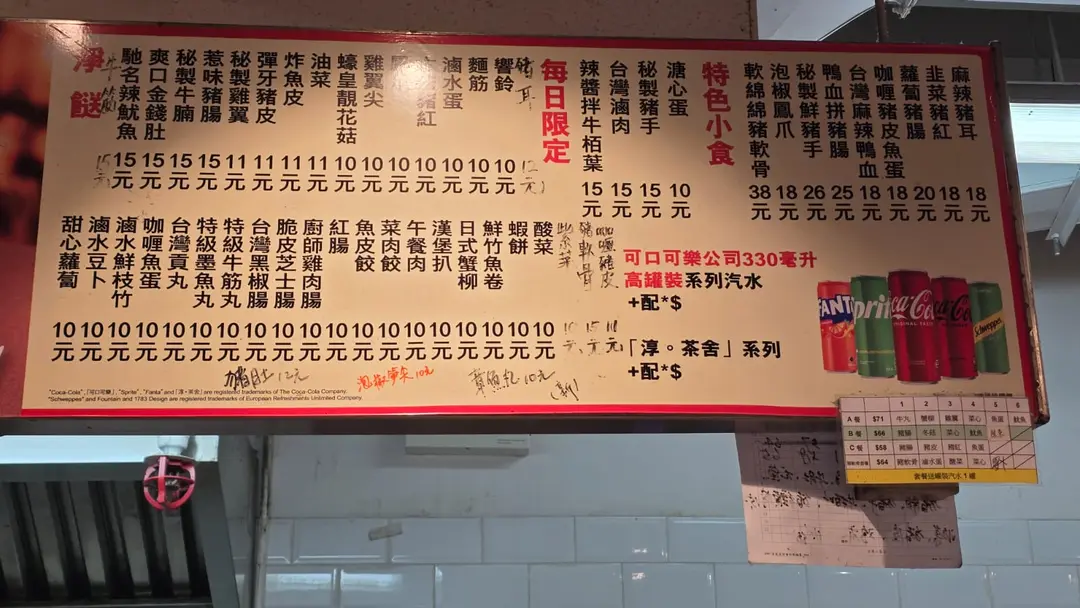 淨餸
牛筋 15元
馳名辣魷魚 15元
爽口金錢肚 15元
秘製牛腩 15元
惹味豬腸 15元
秘製雞翼 11元
彈牙豬皮 11元
炸魚皮 11元
油菜 11元
蠔皇靚花菇 10元
雞翼尖 10元
10元
豬紅 10元
滷水蛋 10元
麵筋 10元
響鈴 10元
豬耳 12元
甜心蘿蔔 10元
滷水豆卜 10元
滷水鮮枝竹 10元
咖喱魚蛋 10元
台灣貢丸 10元
特級墨魚丸 10元
特級牛筋丸 10元
台灣黑椒腸 10元
脆皮芝士腸 10元
廚師雞肉腸 10元
紅腸 10元
魚皮餃 10元
菜肉餃 10元
午餐肉 10元
漢堡扒 10元
日式蟹柳 10元
鮮竹魚卷 10元
蝦餅 10元
酸菜 10元
紫菜 10元
豬軟骨 15元
咖喱豬皮 11元
豬肚 12元
泡椒筍尖 10元
10元
(新)
"Coca-Cola", 「可口可樂」, "Sprite", "Fanta" and 「淳。茶舍」 are registered trademarks of The Coca-Cola Company.
"Schweppes" and Fountain and 1783 Design are registered trademarks of European Refreshments Unlimited Company.
每日限定
辣醬拌牛栢葉 15元
台灣滷肉 15元
秘製豬手 15元
溏心蛋 10元
特色小食
軟綿綿豬軟骨 38元
泡椒鳳爪 18元
秘製鮮豬手 26元
鴨血拼豬腸 25元
台灣麻辣鴨血 18元
咖喱豬皮魚蛋 18元
蘿蔔豬腸 20元
韭菜豬紅 18元
麻辣豬耳 18元
可口可樂公司330毫升
高罐裝系列汽水
+配*$
「淳。茶舍」系列
+配*$
FANTA
Sprite
Coca-Cola
Coca-Cola
Schweppes
1 2 3 4 5 6
A餐 $71 牛丸 蟹柳 雞翼 菜心 魚蛋 魷魚
B餐 $66 豬腸 冬菇 菜心 魷魚
C餐 $58 豬腸 豬皮 豬紅 魚蛋
$64 豬軟骨 滷水蛋 酸菜 菜心
套餐送罐裝汽水1罐